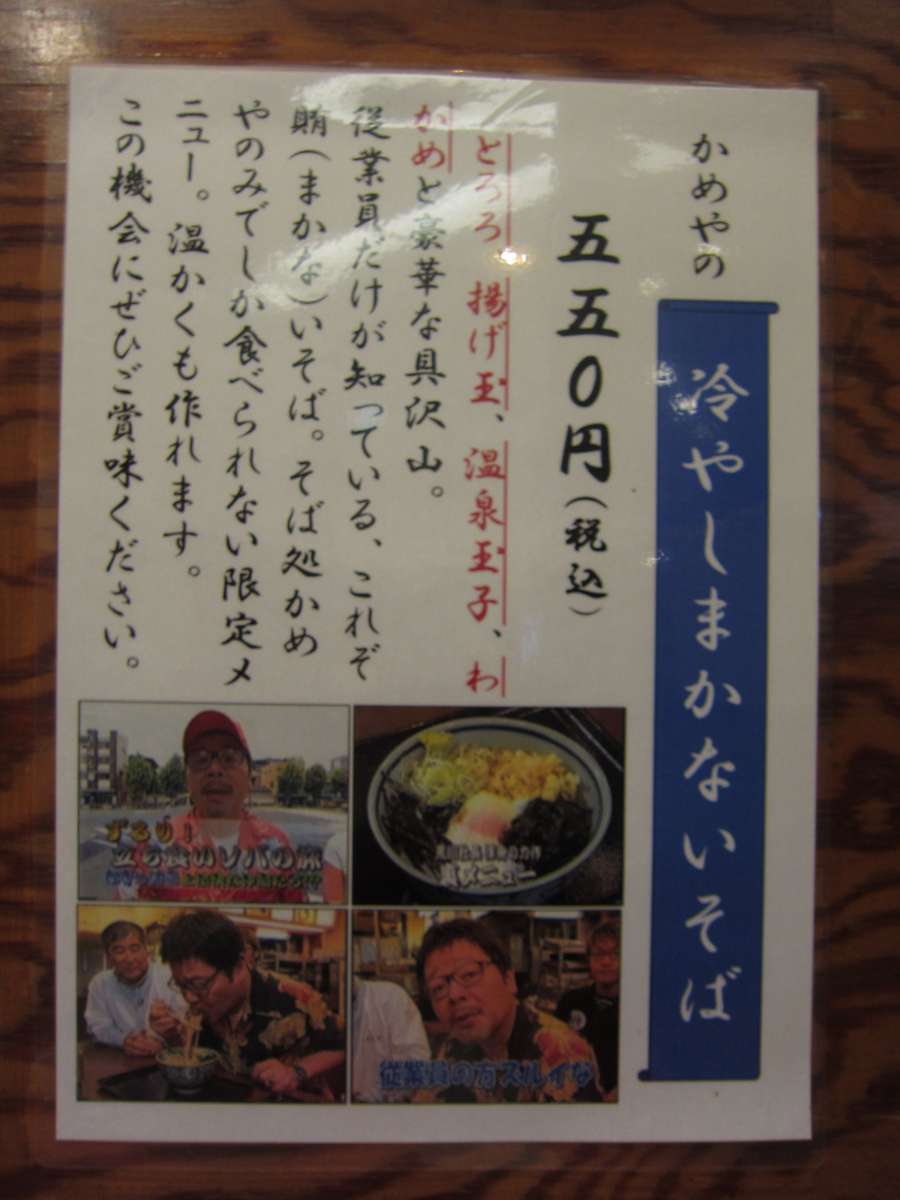 かめやの
冷やしまかないそば
五五０円(税込)
とろろ、揚げ玉、温泉玉子、わ
かめと豪華な具沢山。
従業員だけが知っている、これぞ
賄(まかな)いそば。そば処かめ
やのみでしか食べられない限定メ
ニュー。温かくも作れます。
この機会にぜひご賞味ください。
ずるり！
立ち食いソバの旅
裏メニュー
従業員の方ズルイな